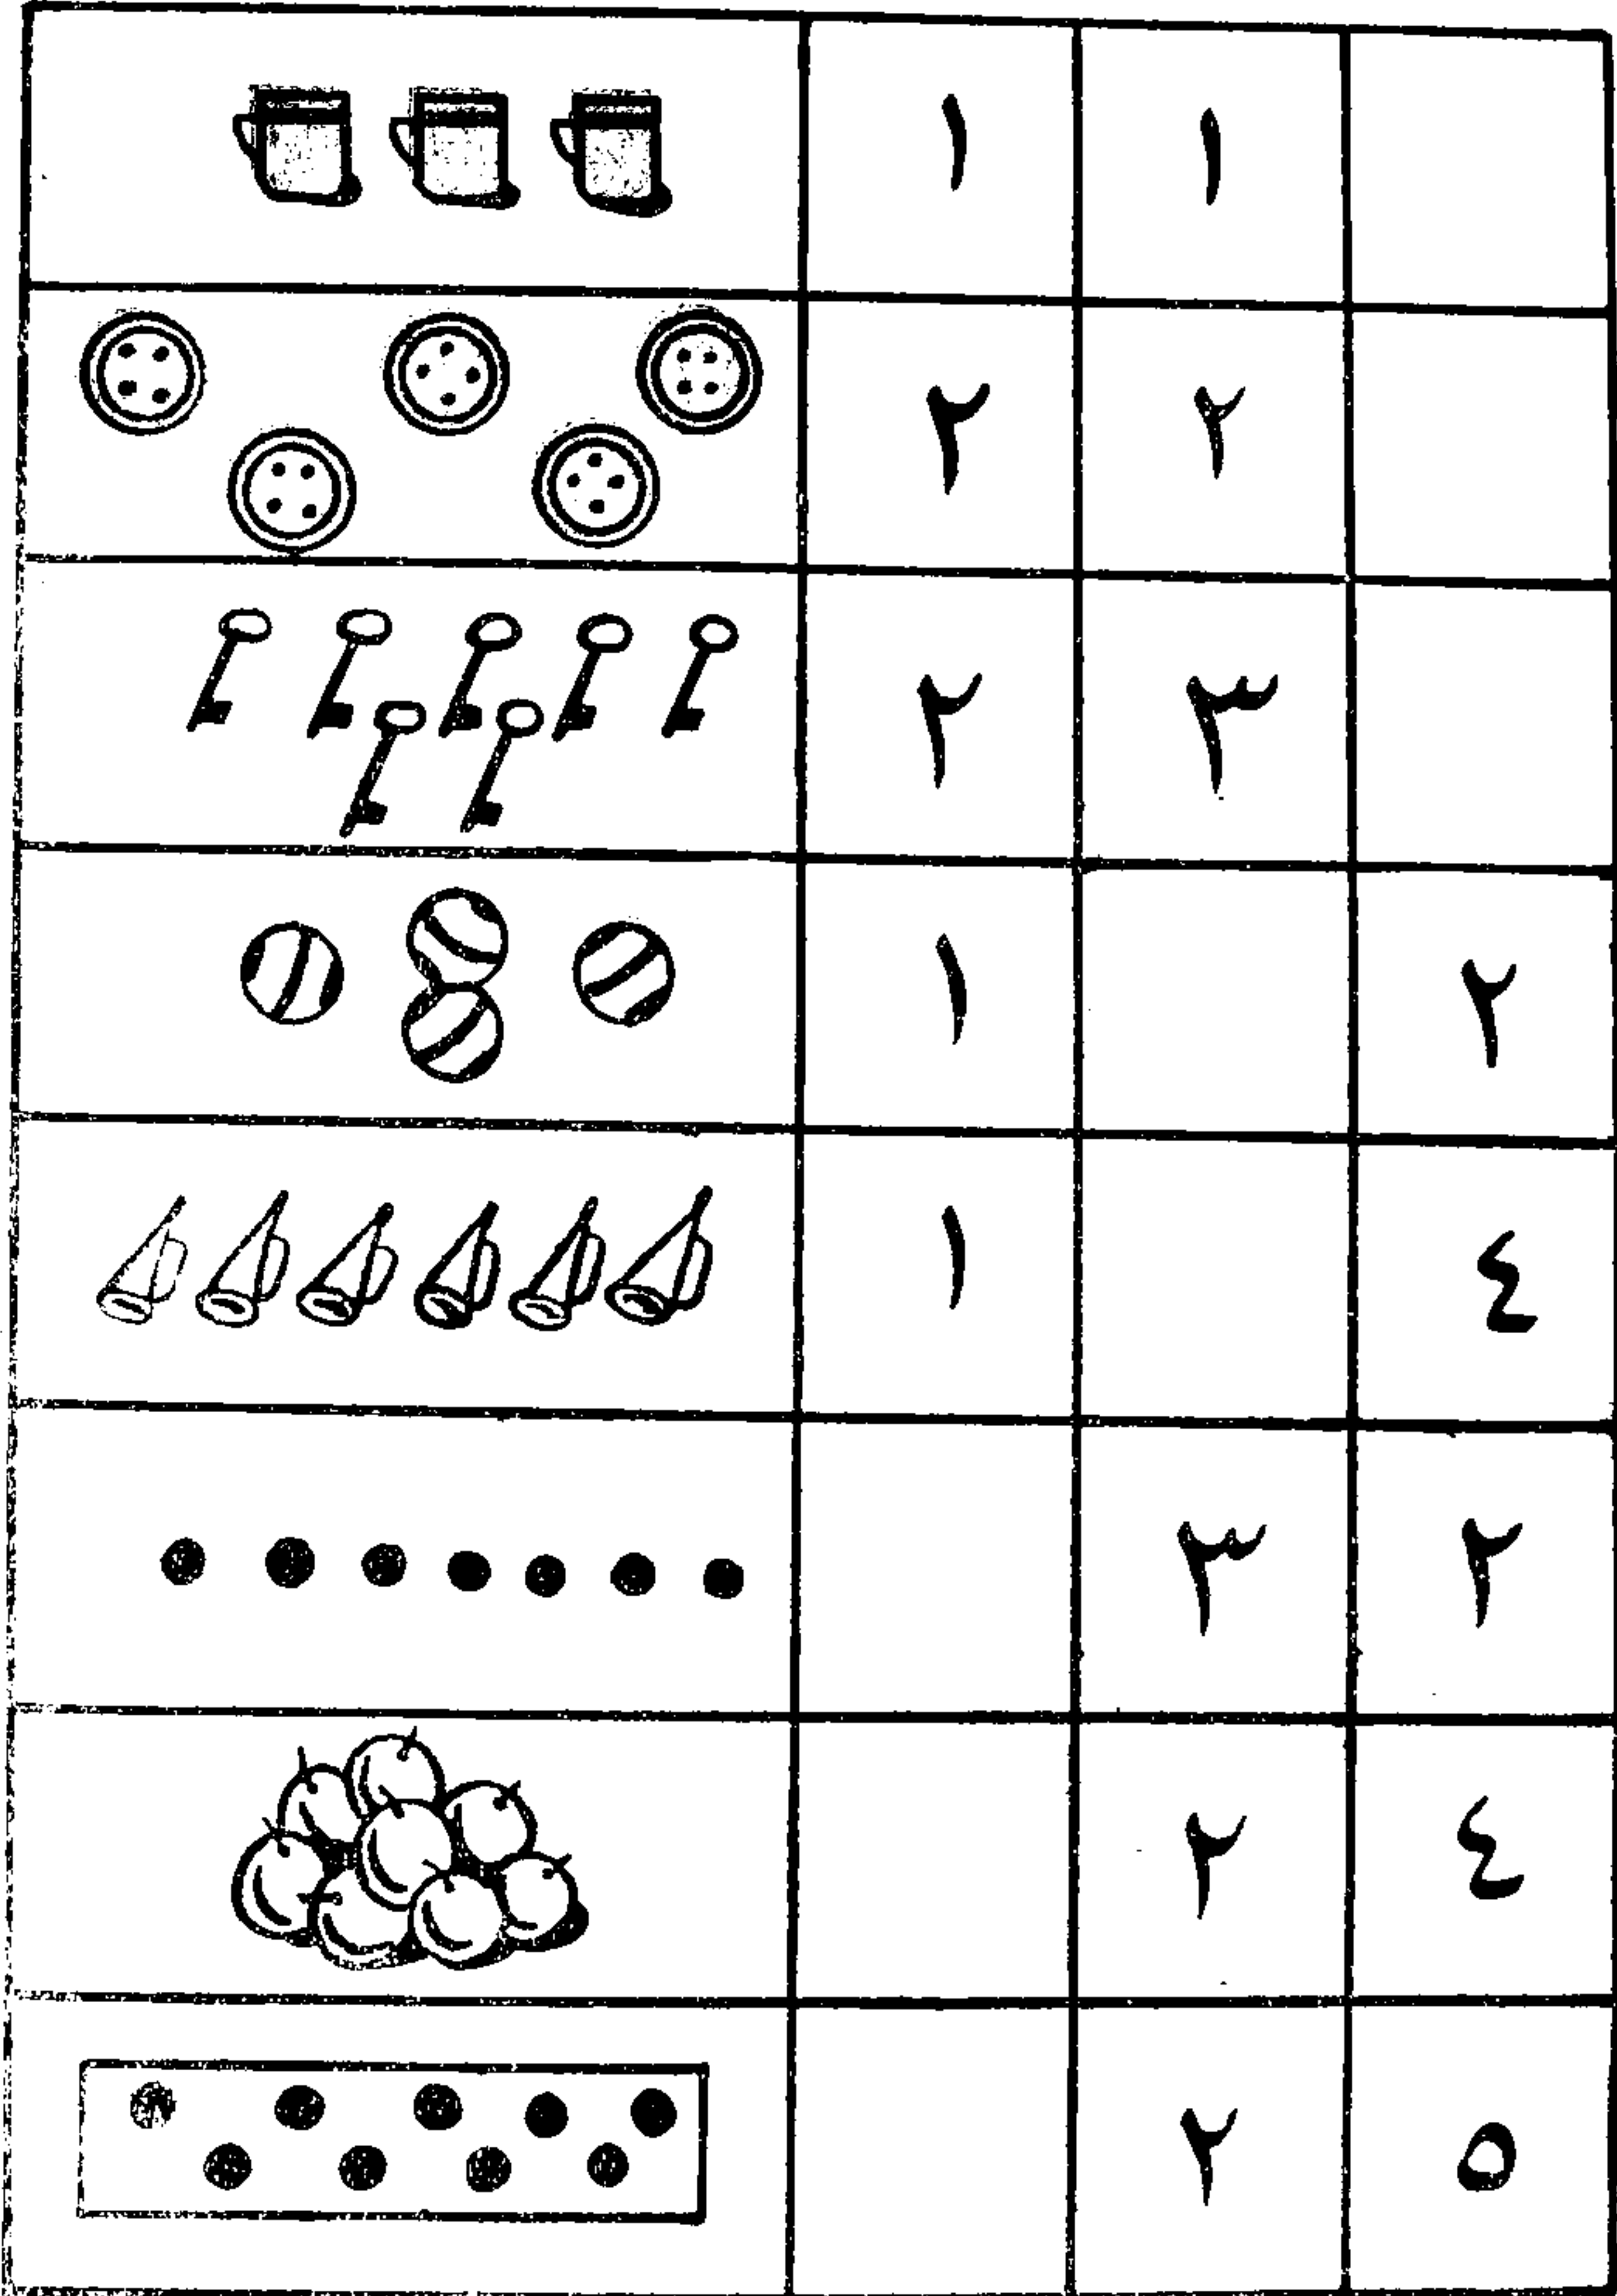 ١ ١
٢ ٢
٢ ٣
١ ٢
١ ٤
٣ ٢
٢ ٤
٢ ٥